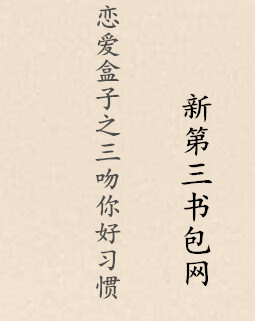 恋爱盒子之三吻你好习惯
新第三书包网